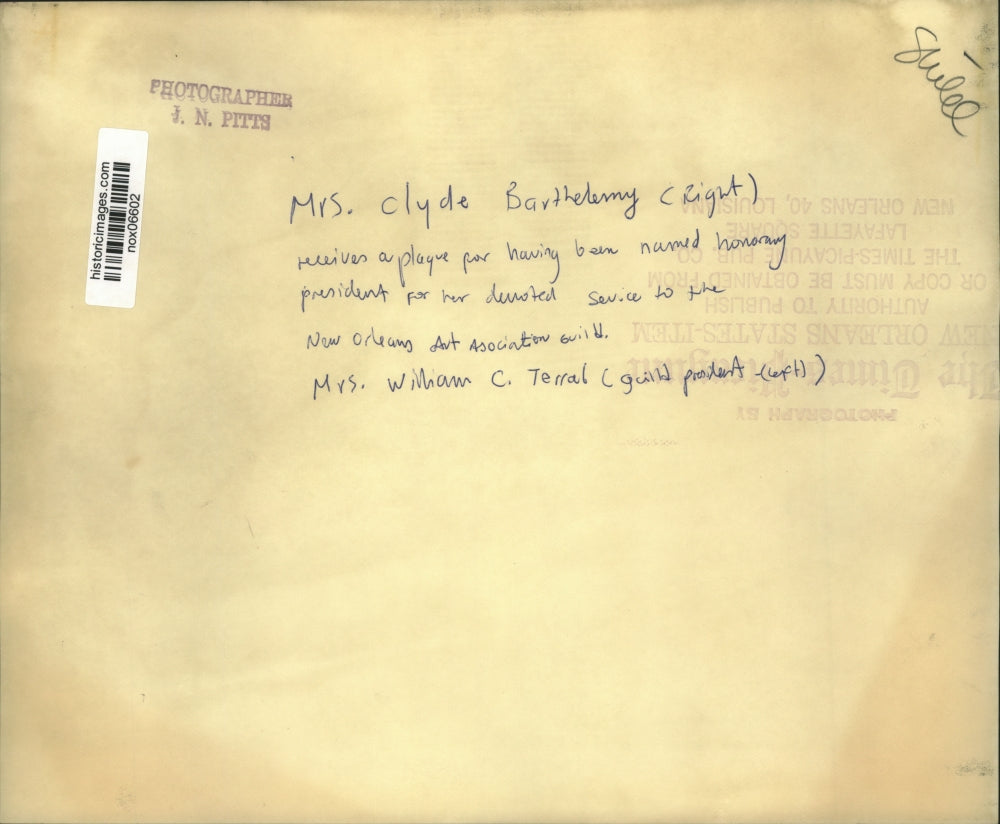 PHOTOGRAPHER
J. N. PITTS
historicimages.com
nox06602
Mrs. Clyde Barthelemy (Right)
receives a plaque for having been named honorary
president for her devoted service to the
New Orleans Art Asociation Guild.
Mrs. William C. Terral (guild president (left))
PHOTOGRAPH BY
The Times-Picayune
NEW ORLEANS STATES-ITEM
AUTHORITY TO PUBLISH
OR COPY MUST BE OBTAINED FROM
THE TIMES-PICAYUNE PUB. CO.
LAFAYETTE SQUARE
NEW ORLEANS 40, LOUISIANA